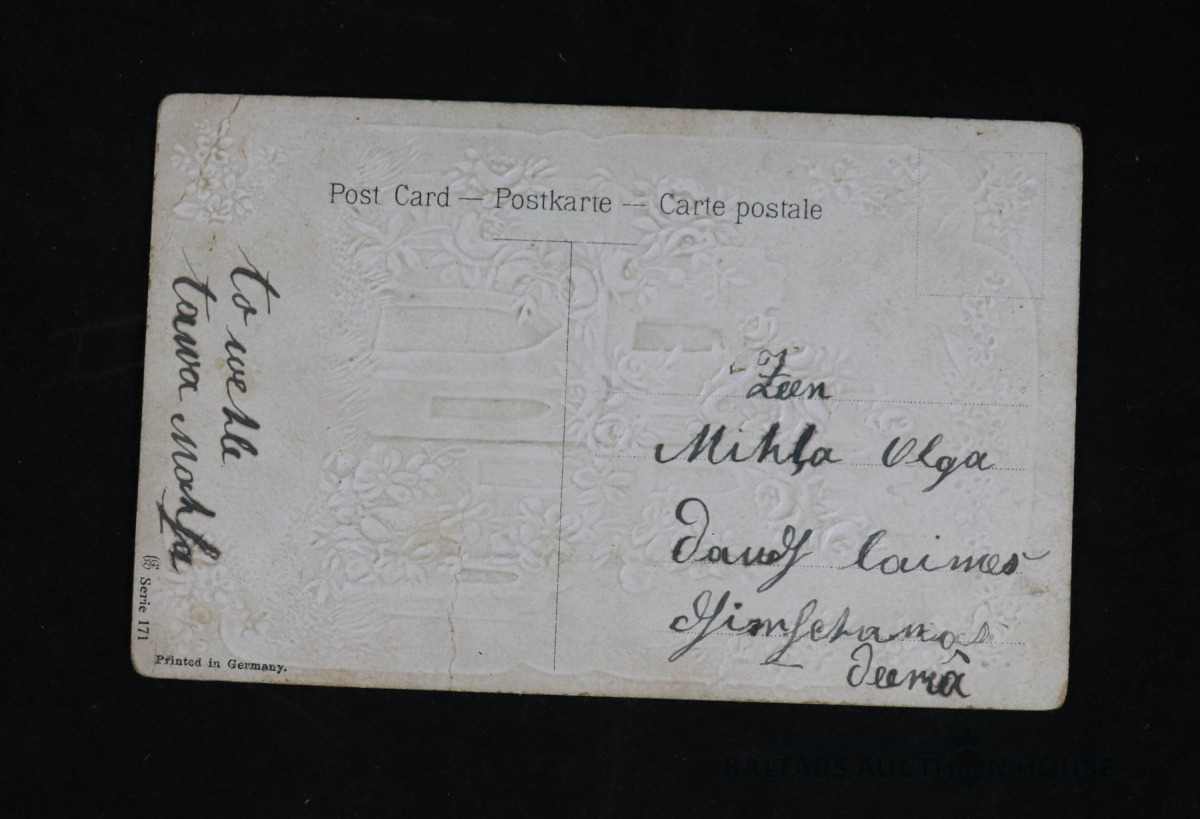 Post Card — Postkarte — Carte postale
to wehle
tawa mahsa
Serie 171
Printed in Germany.
Zeen
Mihļa Olga
Daudſ laimes
dſimſchanas
deenā
BALTARS AUCTION HOUSE